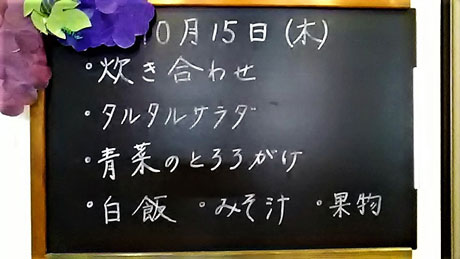 10月15日(木)
・炊き合わせ
・タルタルサラダ
・青菜のとろろがけ
・白飯 ・みそ汁 ・果物